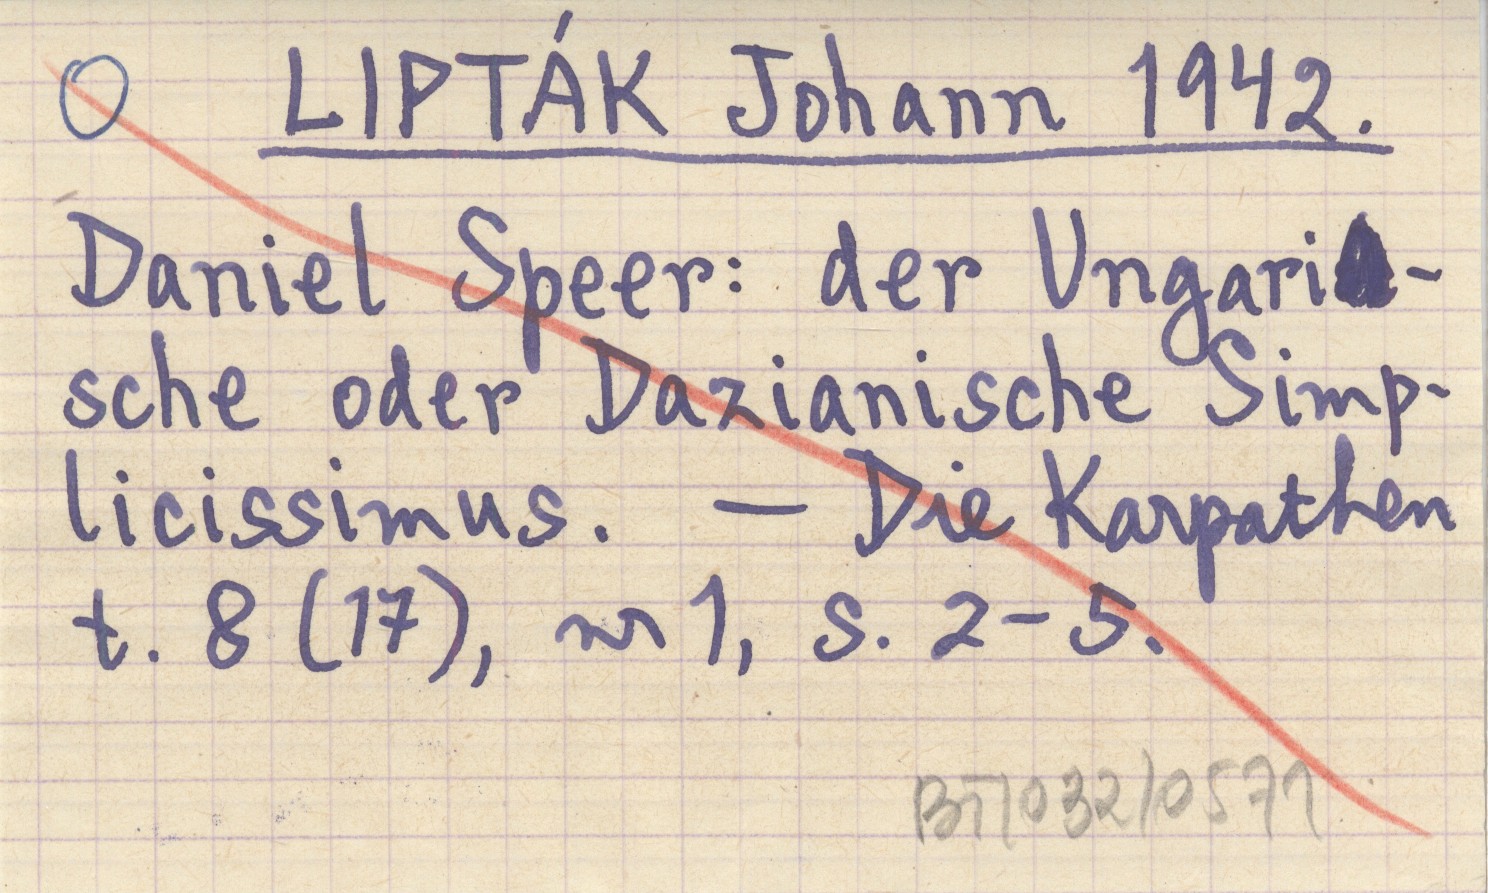 O LIPTÁK Johann 1942.
Daniel Speer: der Ungari-
sche oder Dazianische Simp-
licissimus. — Die Karpathen
t. 8 (17), nr 1, s. 2-5.
BT/032/0571